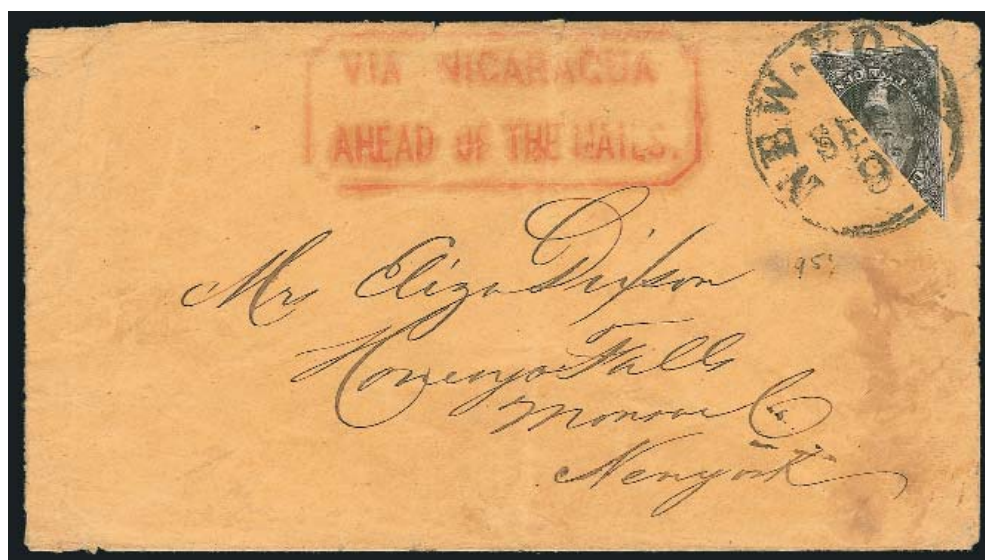 VIA NICARAGUA
AHEAD OF THE MAILS.
NEW-YO
SEP
9
Mrs Eliza Dixson
Honeoye Falls
Monroe Co.
New york